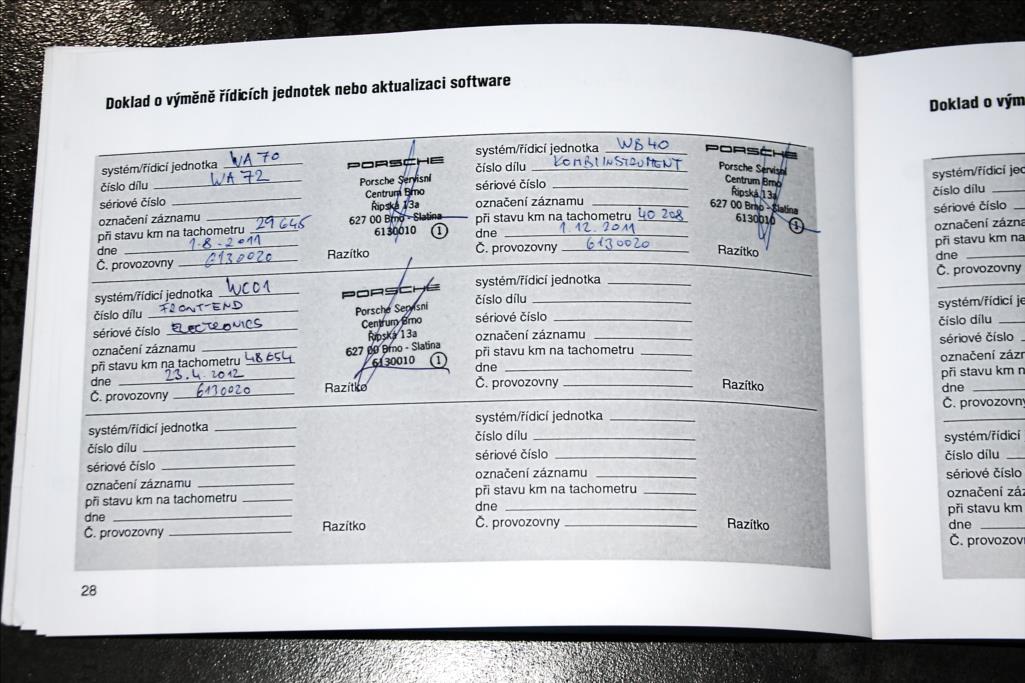 Doklad o výměně řídicích jednotek nebo aktualizaci software
systém/řídicí jednotka WA70
číslo dílu WA72
sériové číslo
označení záznamu
při stavu km na tachometru 29645
dne 1.8.2011
Č. provozovny 6130020
PORSCHE
Porsche Servisní
Centrum Brno
Řipská 13a
627 00 Brno - Slatina
6130010 1
Razítko
systém/řídicí jednotka WB40
číslo dílu KOMBIINSTRUMENT
sériové číslo
označení záznamu
při stavu km na tachometru 40 208
dne 1.12.2011
Č. provozovny 6130020
PORSCHE
Porsche Servisní
Centrum Brno
Řipská 13a
627 00 Brno - Slatina
6130010 1
Razítko
systém/řídicí jednotka WC01
číslo dílu FRONT-END
sériové číslo ELECTRONICS
označení záznamu
při stavu km na tachometru 48654
dne 23.4.2012
Č. provozovny 6130020
PORSCHE
Porsche Servisní
Centrum Brno
Řipská 13a
627 00 Brno - Slatina
6130010 1
Razítko
systém/řídicí jednotka
číslo dílu
sériové číslo
označení záznamu
při stavu km na tachometru
dne
Č. provozovny
Razítko
systém/řídicí jednotka
číslo dílu
sériové číslo
označení záznamu
při stavu km na tachometru
dne
Č. provozovny
Razítko
systém/řídicí jednotka
číslo dílu
sériové číslo
označení záznamu
při stavu km na tachometru
dne
Č. provozovny
Razítko
28
Doklad o vým
systém/řídicí
číslo dílu
sériové číslo
označení
při stavu km
dne
Č. provozovny
systém/řídicí
číslo dílu
sériové číslo
označení
při stavu km
dne
Č. provozovny
systém/řídicí
číslo dílu
sériové číslo
označení
při stavu km
dne
Č. provozov